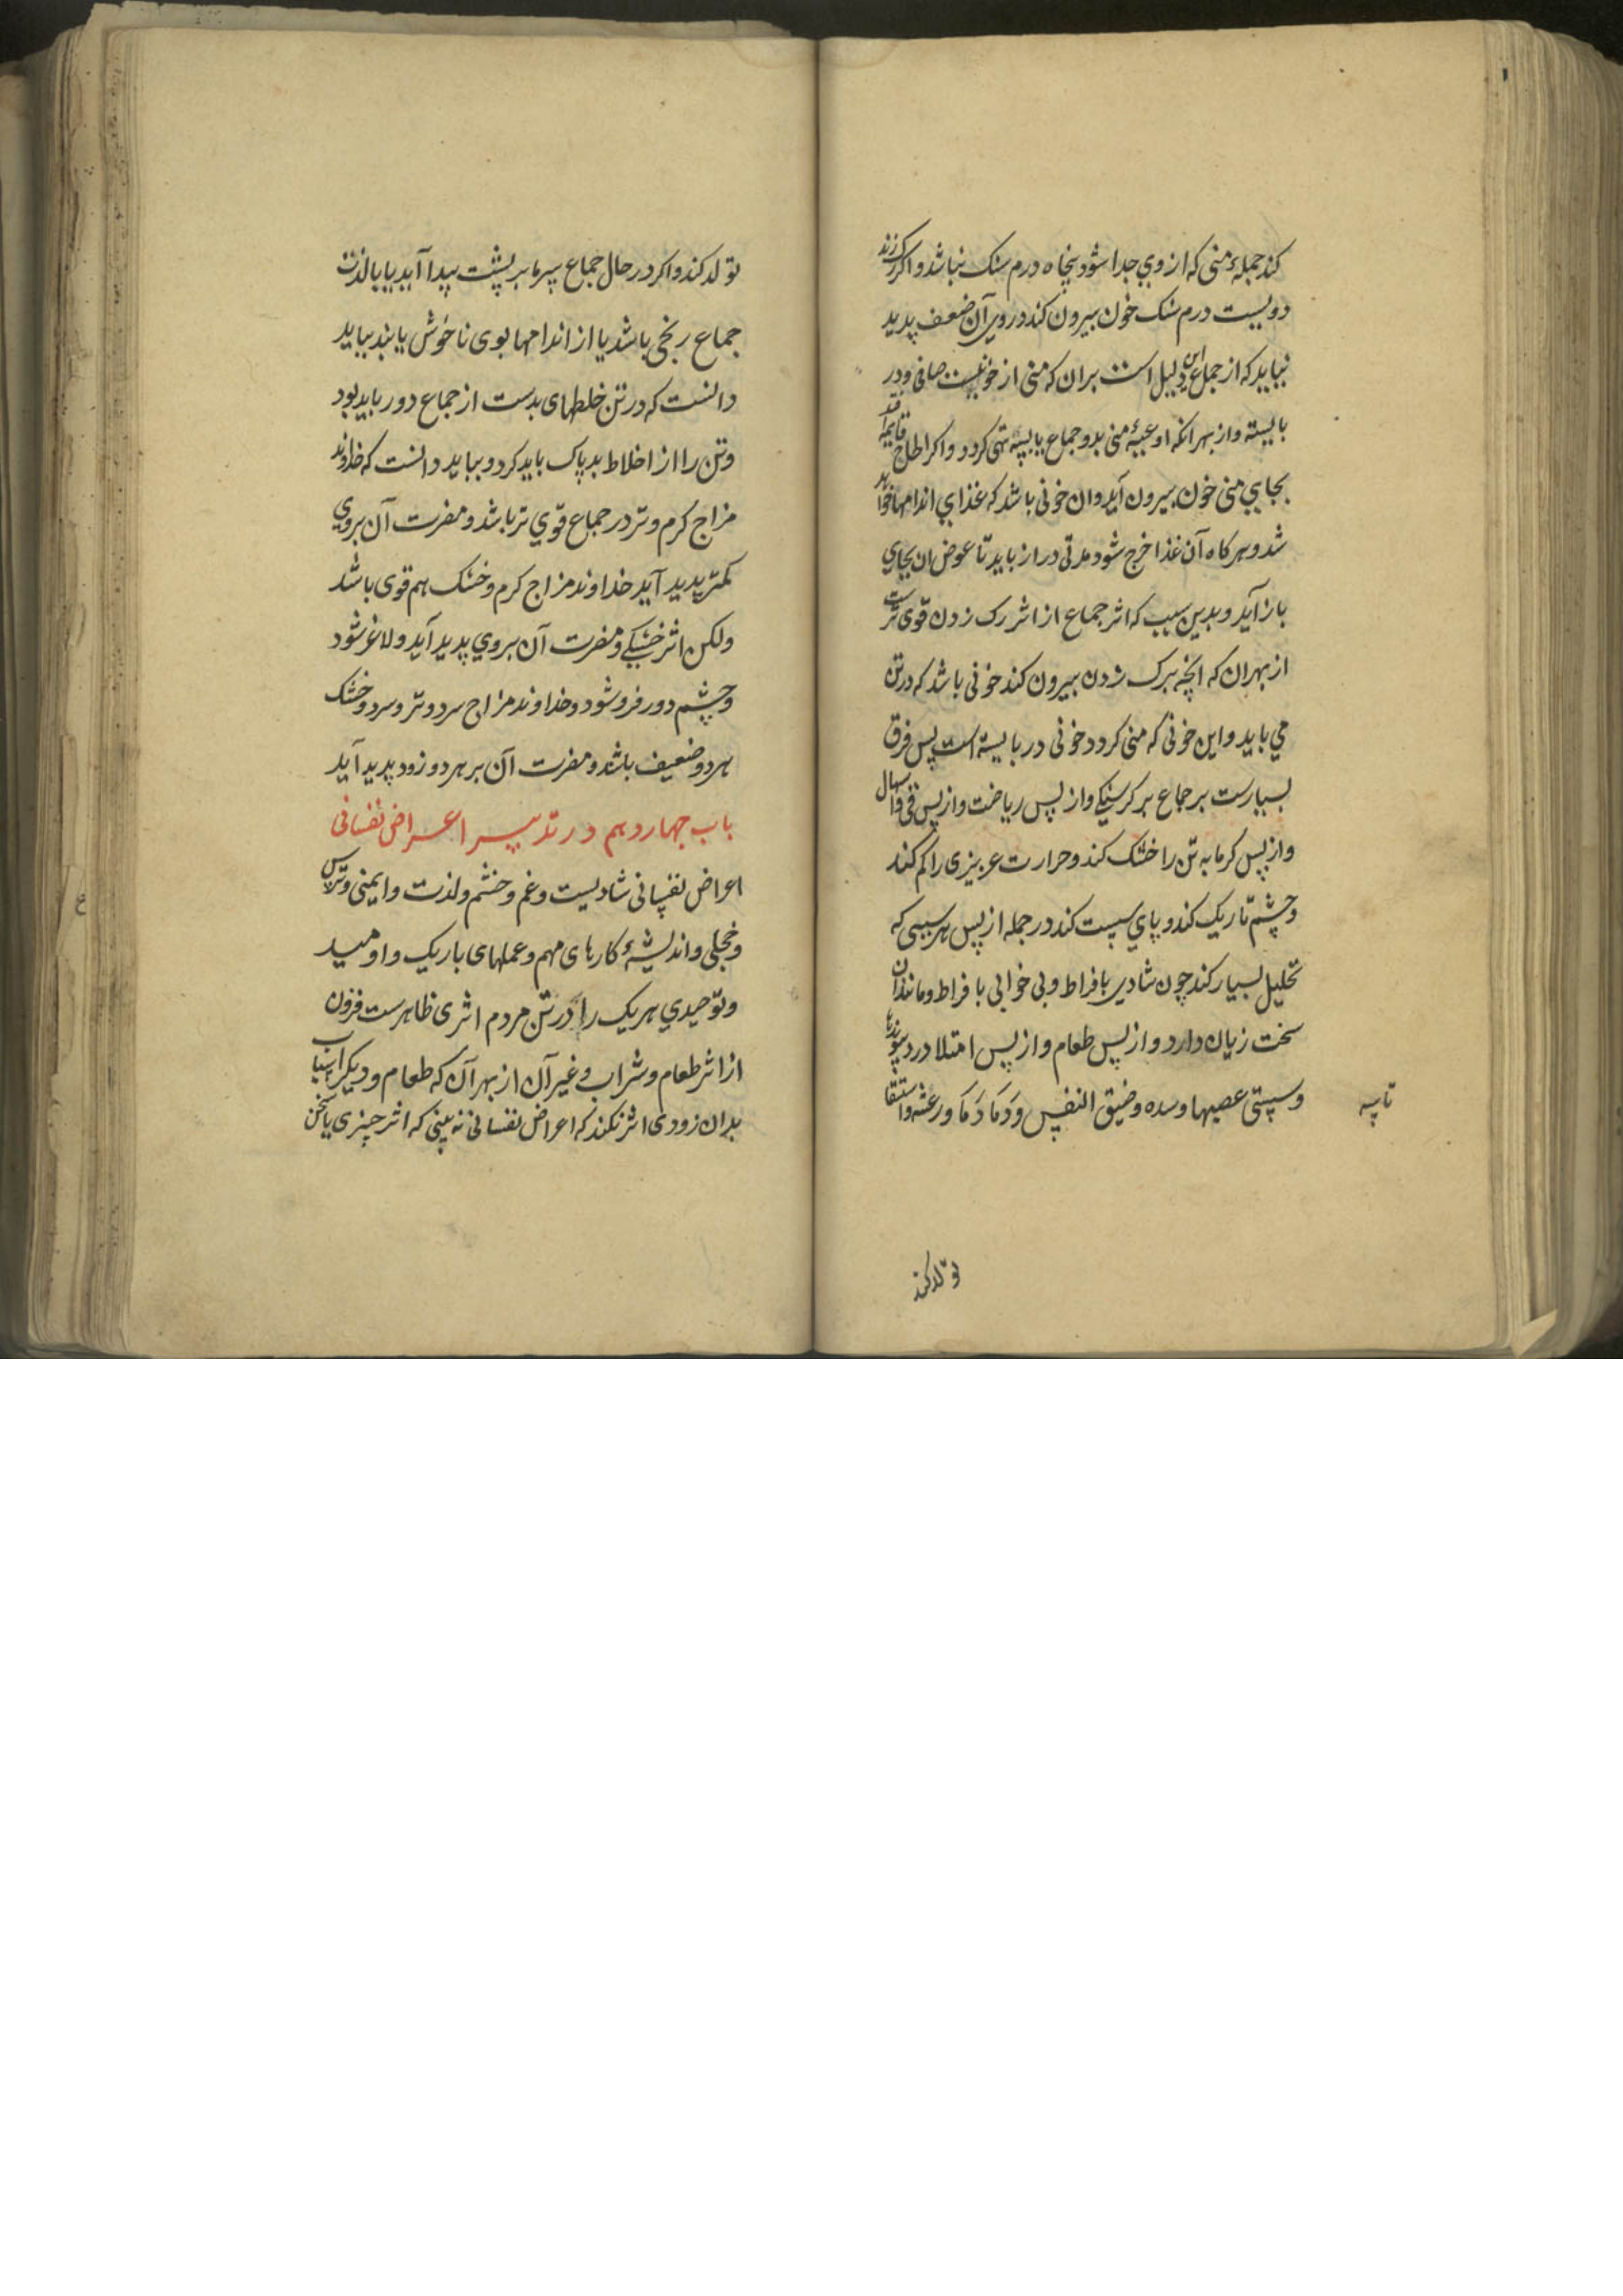 کند جمله منی که از وی جدا شود پنجاه درم سنک نباشد و اکر رک زند
دویست درم سنک خون بیرون کند در وی آن ضعف پدید
نیاید که از جماع این دلیل است بران که منی از خونیست صافی و در
بایسته و از بهر انکه اوعیهٔ منی بدو جماع یا بسه تهی کردد و اکر الحاح
بجای منی خون بیرون آید و ان خونی باشد که غذای اندامها خواهد
شد و هرکاه آن غذا خرج شود مدتی دراز باید تا عوض ان بجای
باز آید و بدین سبب که اثر جماع از اثر رک زدن قوی ترست
از بهر ان که انچه برک زدن بیرون کند خونی باشد که در تن
می باید و این خونی که منی کردد خونی در بایسته است پس فرق
بسیارست بر جماع بر کرسنکی و از پس ریاضت و از پس قی و اسهال
و از پس کرمابه تن را خشک کند و حرارت عریزی را کم کند
و چشم تاریک کند و پای سست کند در جمله از پس هر سببی که
تحلیل بسیار کند چون شادی بافراط و بی خوابی بافراط و مانند آن
سخت زیان دارد و از پس طعام و از پس امتلا درد پیوندها
و سستی عصبها و سده و ضیق النفس و دَمادَما و رعشه و استسقا
تاسه
تولد کند
تولد کند و اکر در حال جماع سرما بر پشت پیدا آید یا با لذت
جماع رنجی باشد یا از اندامها بوی ناخوش یابند بباید
دانست که در تن خلطهای بدست از جماع دور باید بود
و تن را از اخلاط بد پاک باید کرد و بباید دانست که خداوند
مزاج کرم و تر در جماع قوی تر باشد و مضرت آن بروی
کمتر پدید آید خداوند مزاج کرم و خشک هم قوی باشد
ولکن اثر خشکی و مضرت آن بروی پدید آید و لاغر شود
و چشم دور فرو شود و خداوند مزاج سرد و تر و سرد و خشک
هردو ضعیف باشد و مضرت آن بر هردو زود پدید آید
باب چهاردهم در تدبیر اعراض نفسانی
اعراض نفسانی شادیست و غم و خشم و لذت و ایمنی و ترس
و خجلی و اندیشهٔ کارهای مهم و عملهای باریک و اومید
و نومیدی هریک را در تن مردم اثری ظاهرست فزون
از اثر طعام و شراب و غیر آن از بهر آن که طعام و دیکر اسباب
بدان زودی اثر نکند که اعراض نفسانی نه بینی که اثر چیزی یا سخن